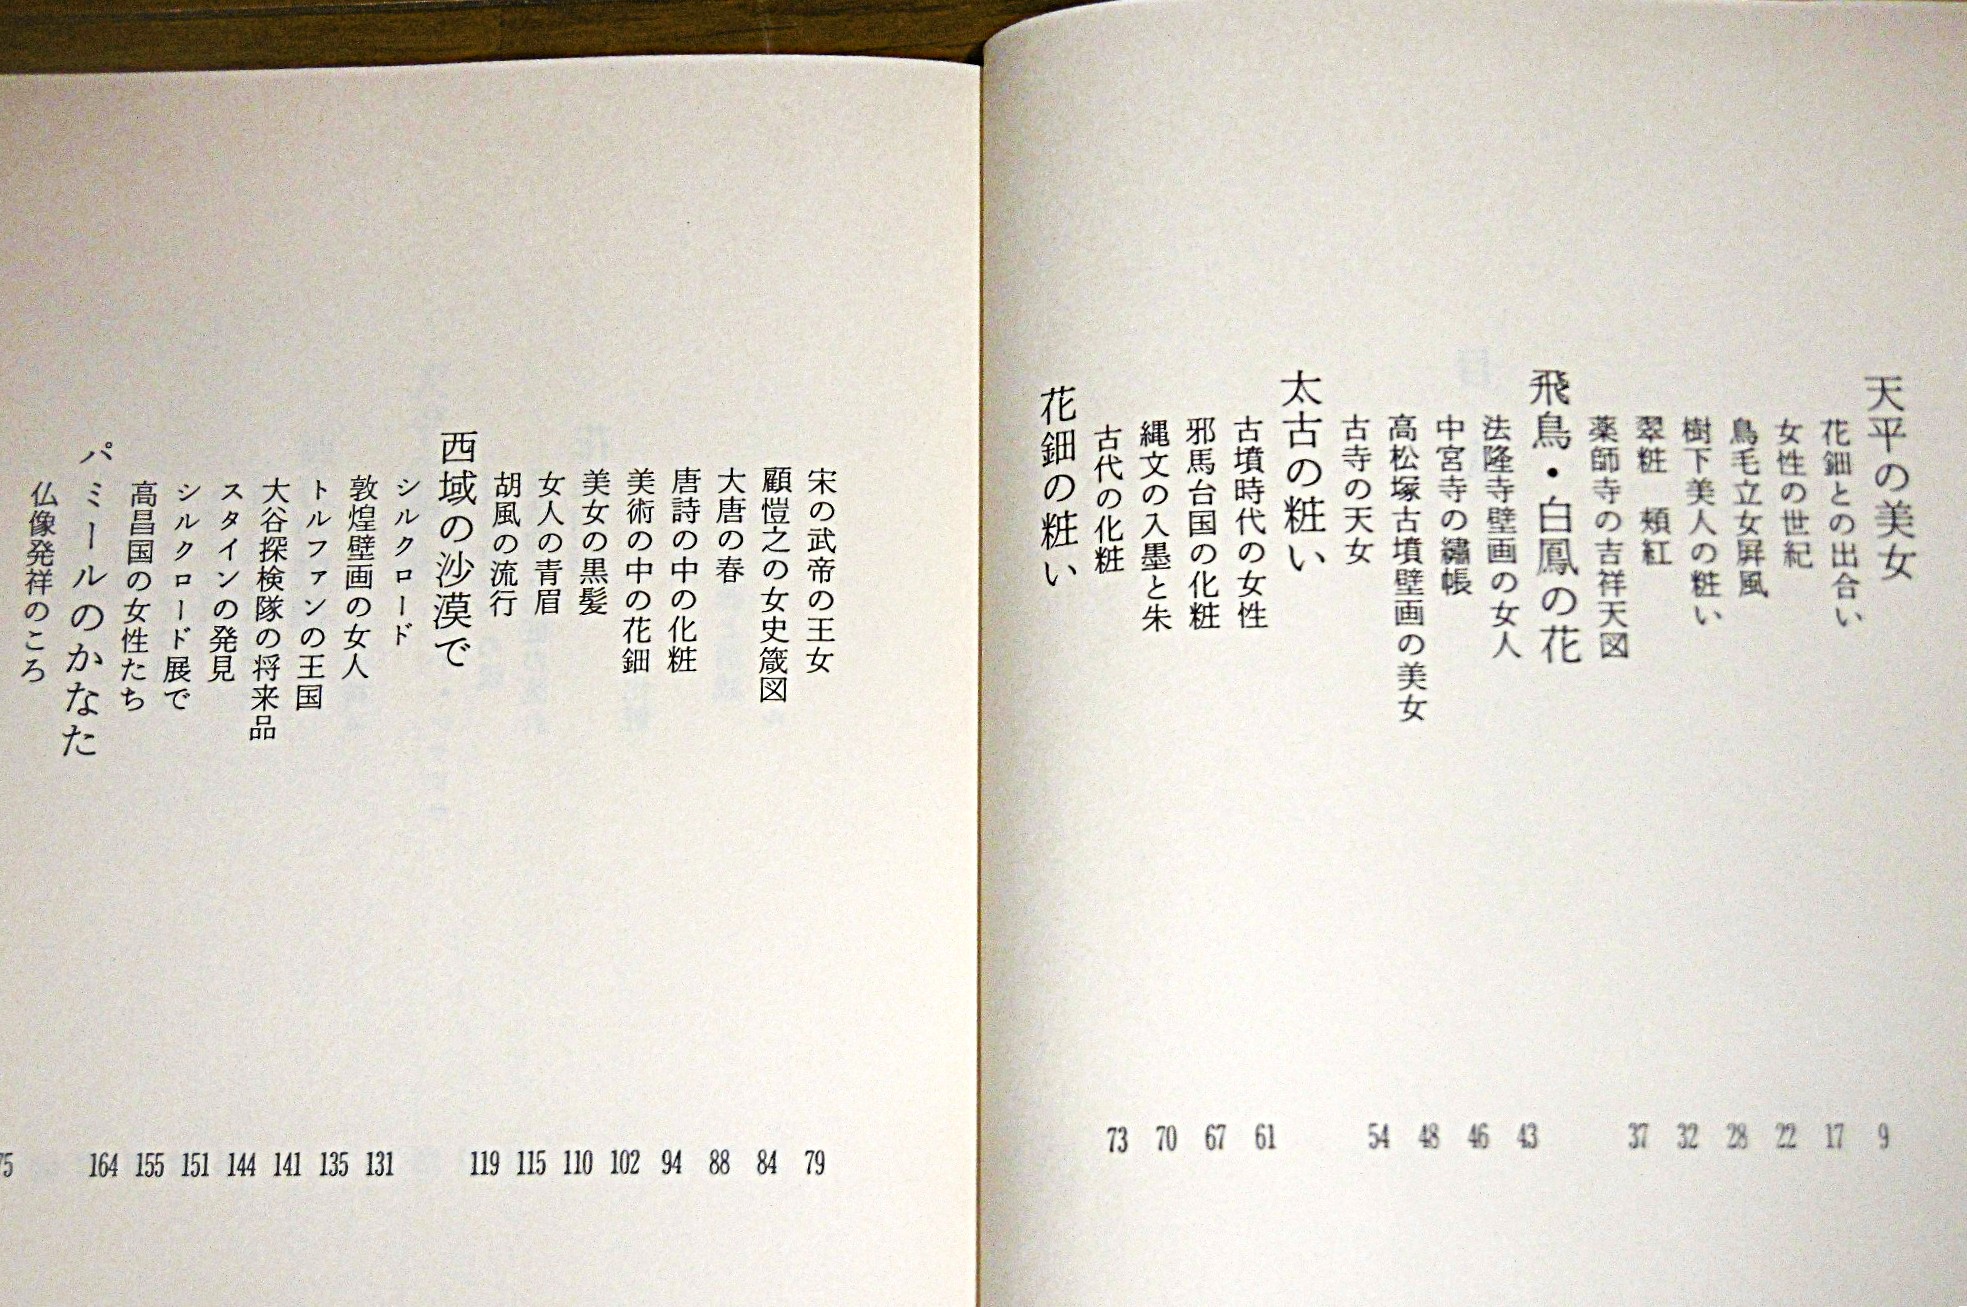 天平の美女
花鈿との出合い 9
女性の世紀 17
鳥毛立女屏風 22
樹下美人の粧い 28
翠粧 頬紅 32
薬師寺の吉祥天図 37
飛鳥・白鳳の花
法隆寺壁画の女人 43
中宮寺の繡帳 46
高松塚古墳壁画の美女 48
古寺の天女 54
太古の粧い
古墳時代の女性 61
邪馬台国の化粧 67
縄文の入墨と朱 70
古代の化粧 73
花鈿の粧い
宋の武帝の王女 79
顧愷之の女史箴図 84
大唐の春 88
唐詩の中の化粧 94
美術の中の花鈿 102
美女の黒髪 110
女人の青眉 115
胡風の流行 119
西域の沙漠で
シルクロード 131
敦煌壁画の女人 135
トルファンの王国 141
大谷探検隊の将来品 144
スタインの発見 151
シルクロード展で 155
高昌国の女性たち 164
パミールのかなた
仏像発祥のころ 75